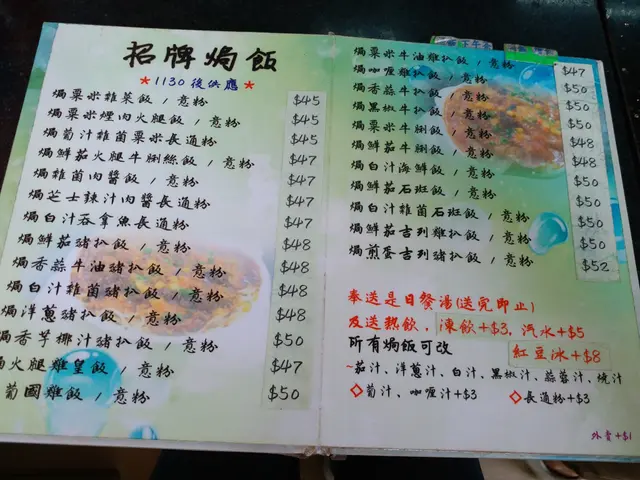 招牌焗飯
*1130後供應*
焗粟米雜菜飯 / 意粉 $45
焗粟米煙肉火腿飯 / 意粉 $45
焗葡汁雜菌粟米長通粉 $45
焗鮮茄火腿牛脷絲飯 / 意粉 $47
焗雜菌肉醬飯 / 意粉 $47
焗芝士辣汁肉醬長通粉 $47
焗白汁吞拿魚長通粉 $47
焗鮮茄豬扒飯 / 意粉 $48
焗香蒜牛油豬扒飯 / 意粉 $48
焗白汁雜菌豬扒飯 / 意粉 $48
焗洋蔥豬扒飯 / 意粉 $48
焗香芋椰汁豬扒飯 / 意粉 $50
火腿雞皇飯 / 意粉 $47
葡國雞飯 / 意粉 $50
焗粟米牛油雞扒飯 / 意粉 $47
焗咖喱雞扒飯 / 意粉 $50
焗香蒜牛扒飯 / 意粉 $50
焗黑椒牛扒飯 / 意粉 $50
焗粟米牛脷飯 / 意粉 $48
焗鮮茄牛脷飯 / 意粉 $48
焗白汁海鮮飯 / 意粉 $50
焗鮮茄石班飯 / 意粉 $50
焗白汁雜菌石班飯 / 意粉 $50
焗鮮茄吉列雞扒飯 / 意粉 $50
焗煎蛋吉列豬扒飯 / 意粉 $52
奉送是日餐湯(送完即止)
及送熱飲，凍飲+$3, 汽水+$5
所有焗飯可改 紅豆冰+$8
~茄汁、洋蔥汁、白汁、黑椒汁、蒜蓉汁、燒汁
◇葡汁、咖喱汁+$3 ◇長通粉+$3
外賣+$1